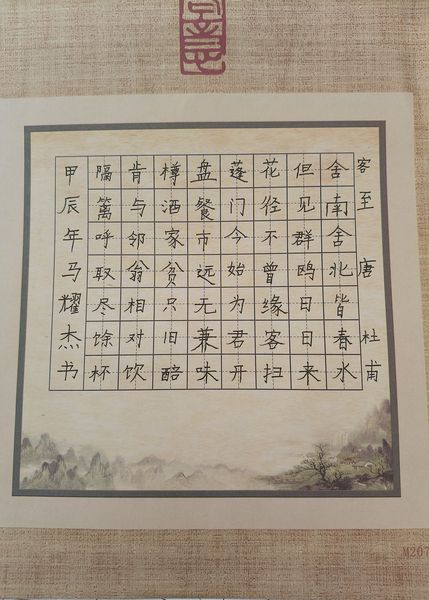 客至 唐 杜甫
舍南舍北皆春水
但见群鸥日日来
花径不曾缘客扫
蓬门今始为君开
盘餐市远无兼味
樽酒家贫只旧醅
肯与邻翁相对饮
隔篱呼取尽馀杯
甲辰年马耀杰书
M207